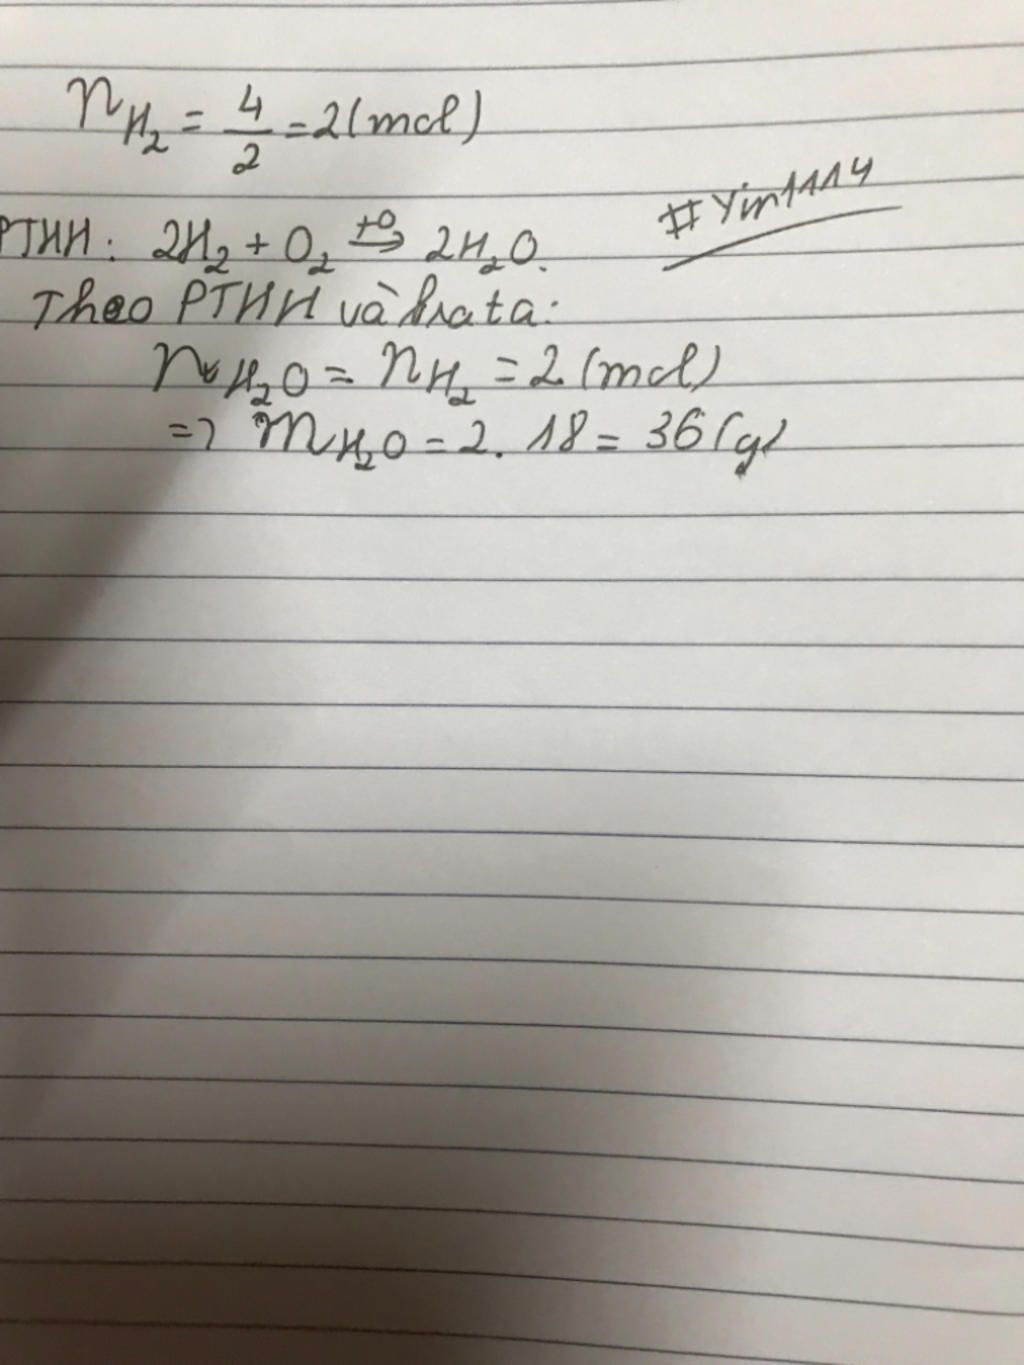 nH₂ = 4/2 = 2 (mol)
#Yin1114
PTHH: 2H₂ + O₂ →(t⁰) 2H₂O.
Theo PTHH và ta:
nH₂O = nH₂ = 2 (mol)
=> mH₂O = 2. 18 = 36 (g)